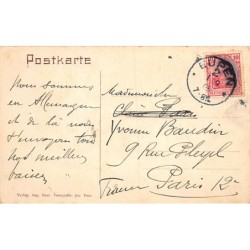 Postkarte
EUPEN
Nous sommes
en Allemagne
et de là nous
t'envoyons tous
nos meilleurs
baisers
Mademoiselle
Yvonne Baudin
9 Rue Pleyel
Paris 12e
France
Verlag